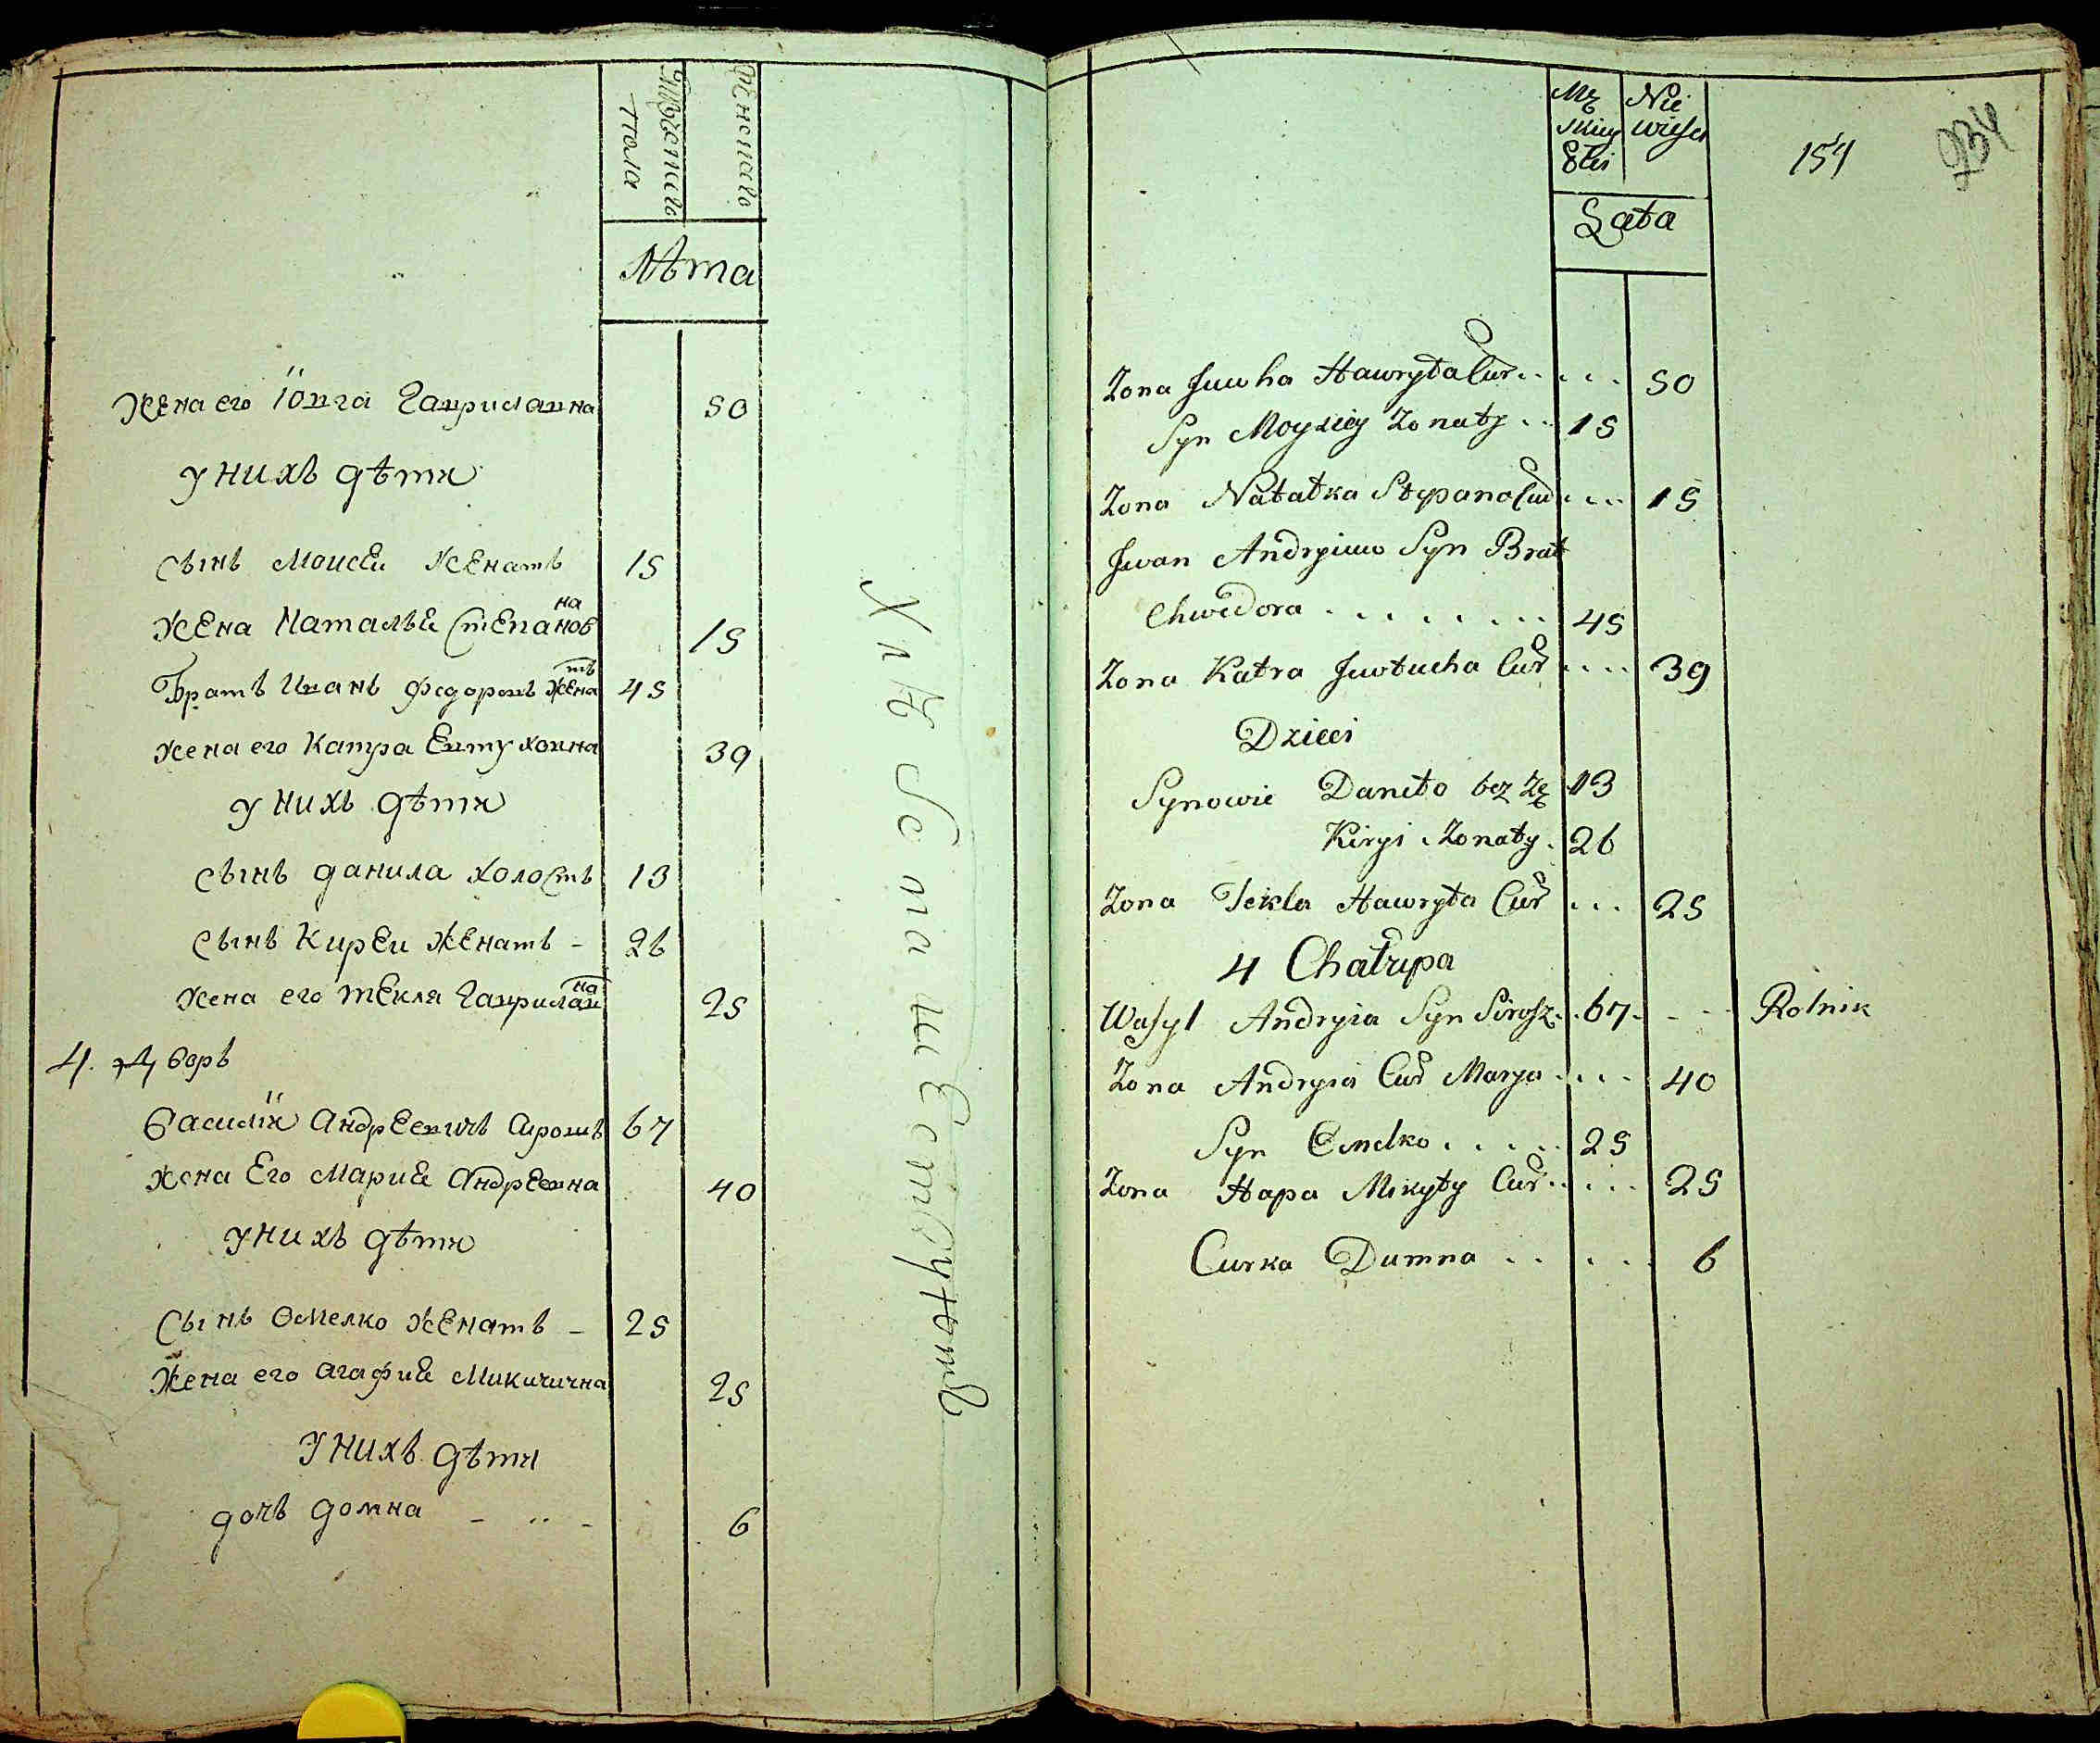 Мужескаго
пола
Женскаго
Лѣта
Жена его Юв͠га Гаврилавна 50
у нихъ дѣти
сынъ Моисеи женатъ 15
жена Наталъя Степановна 15
Братъ Иванъ Федоровъ женатъ 45
жена его Катра Евтуховна 39
у нихъ дѣти
сынъ данила холостъ 13
сынъ Кирѣи женатъ - 26
жена его тЕкля Гаврилавна 25
4. Дворъ
Василiи АндрЕевичъ Сирошъ 67
жена Его Мария АндрЕевна 40
у нихъ дѣти
Сынъ Омелко жЕнатъ - 25
Жена его агафия Микитична 25
у нихъ дѣти
дочъ домна - .. - 6
Mę
skiey
Płci
Nie
wiesci
Łata
154
234
Żona Juwha Hawryła Cur..... 50
Syn Moyziey Żonaty .. 15
Żona Natałka Stepana Cur .... 15
Jwan Andryiuw Syn Brat
Chwedora ........ 45
Żona Katra Juwtucha Cur .... 39
Dzieci
Synowie Daniło bez Żę 13
Kiryi Żonaty . 26
Żona Tekla Hawryła Cur ... 25
4 Chałupa
Wasyl Andryia Syn Sirosz.. 67. - - - Rolnik
Żona Andryia Cur Marya .... 40
Syn Omelko ..... 25
Żona Hapa Mikyty Cur..... 25
Curka Dumna ..... 6